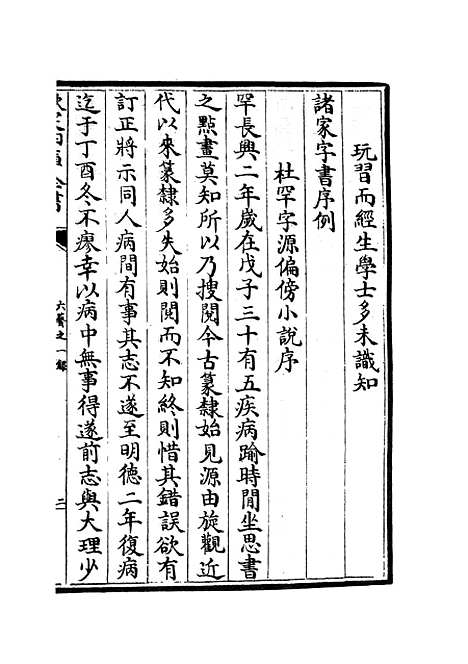 玩習而經生學士多未識知
諸家字書序例
杜罕字源偏傍小說序
罕長興二年歲在戊子三十有五疾病踰時閒坐思書
之點畫莫知所以乃搜閱今古篆隸始見源由旋觀近
代以來篆隸多失始則閱而不知終則惜其錯誤欲有
訂正將示同人病間有事其志不遂至明德二年復病
迄于丁酉冬不瘳幸以病中無事得遂前志與大理少
欽定四庫全書
六藝之一錄
二